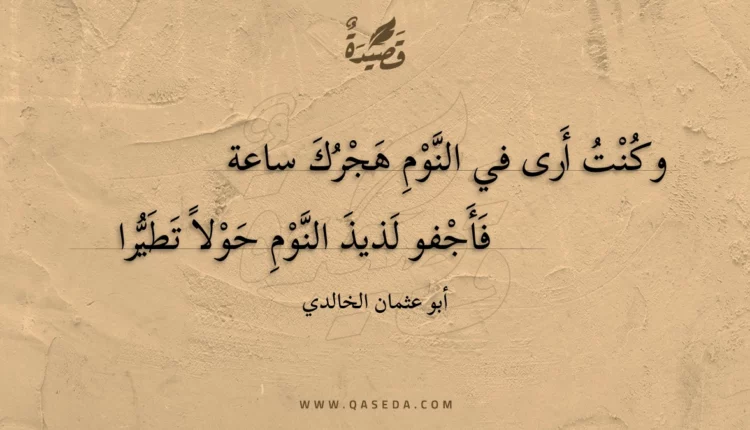 قَصِيدَةٌ
وكُنْتُ أَرى في النَّوْمِ هَجْرُكَ ساعة
فَأَجْفو لَذيذَ النَّوْمِ حَوْلاً تَطَيُّرا
أبو عثمان الخالدي
WWW.QASEDA.COM